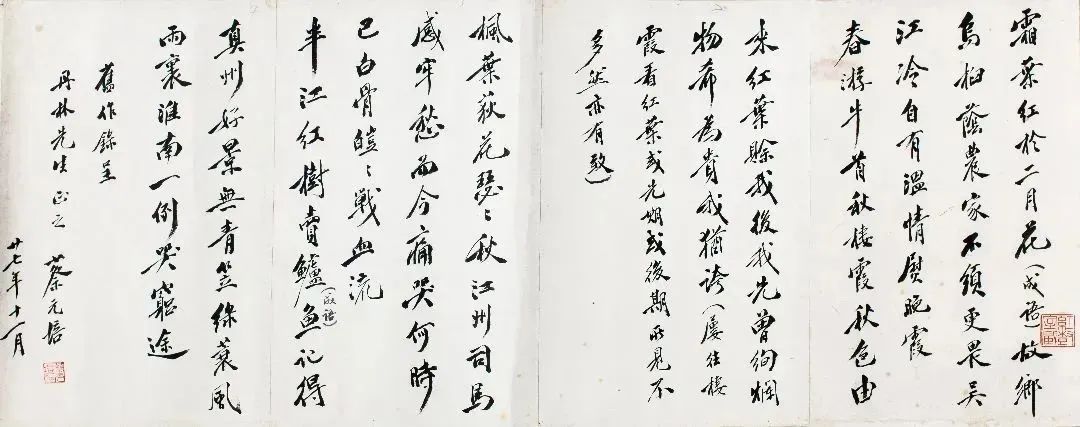 霜葉紅於二月花（成語）故鄉
烏桕蔭農家不須更畏吳
江冷自有溫情熨晚霞
春游牛首秋棲霞秋色由
來紅葉賒我後我先曾絢爛
物希為貴我猶誇（屢往棲
霞看紅葉或先期或後期所見不
多然亦有致）
楓葉荻花瑟〻秋江州司馬
感牢愁而今痛哭何時
已白骨皚〻戰血流
半江紅樹賣鱸（成語）魚記得
真州好景無青笠綠蓑風
雨裏淮南一例哭窮途
舊作錄呈
丹林先生正之
蔡元培
廿七年十一月